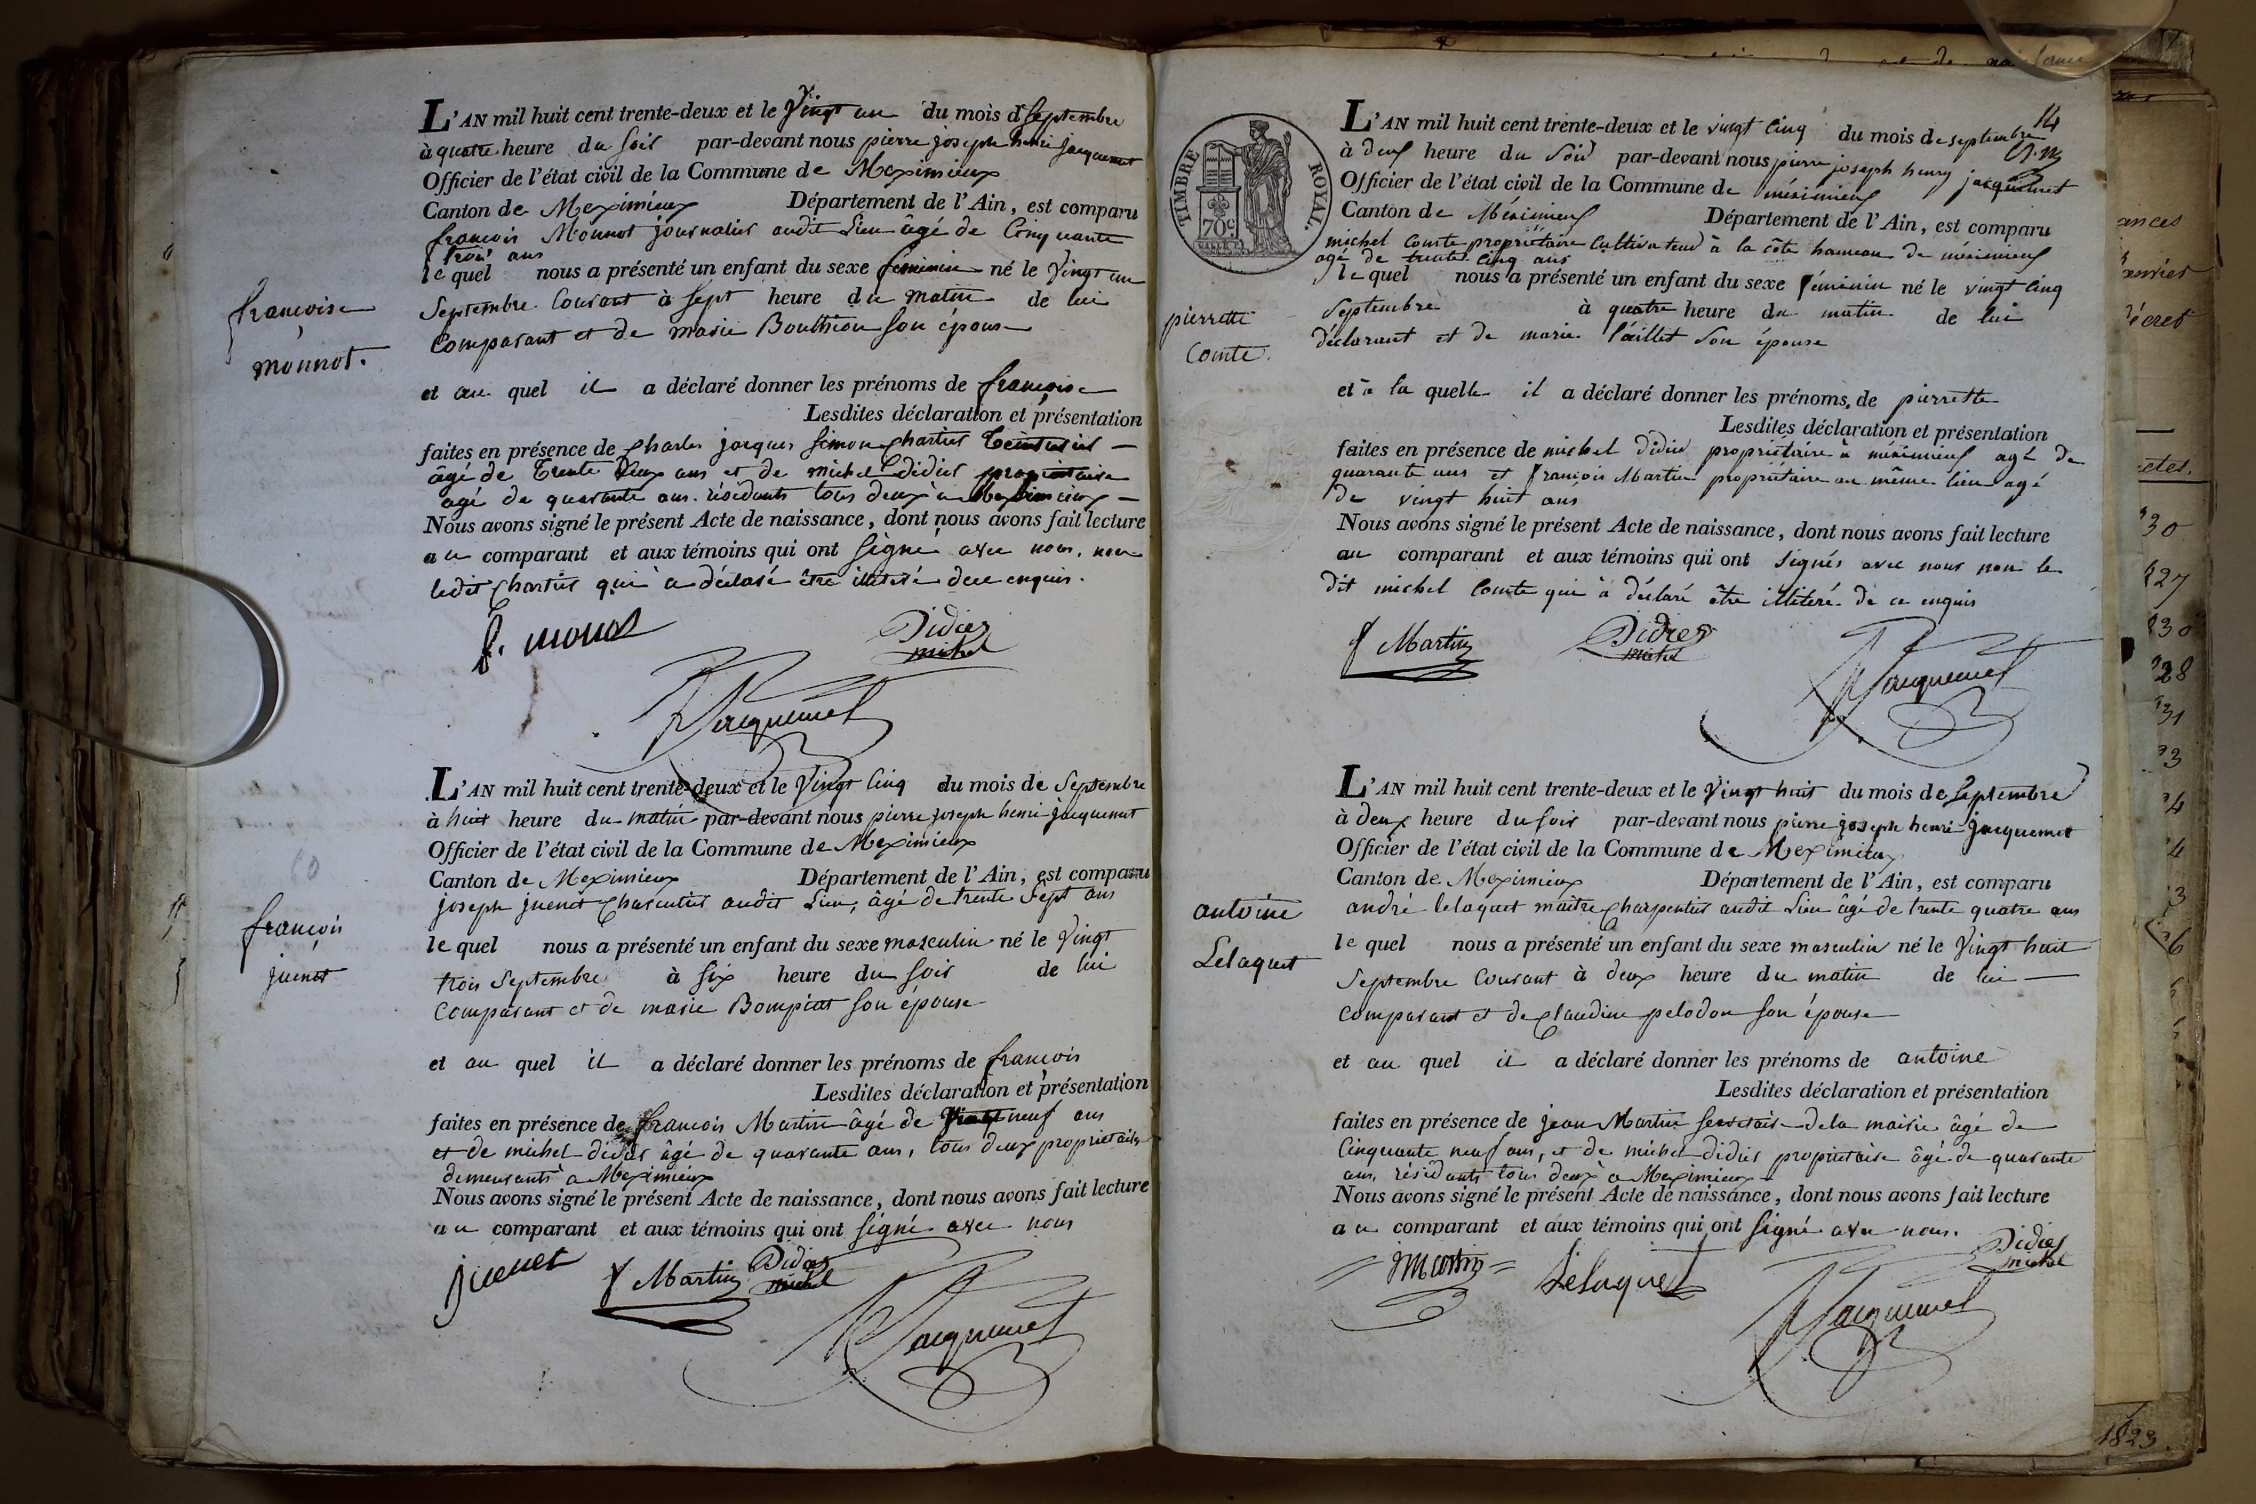 L'AN mil huit cent trente-deux et le Vingt un du mois d Septembre
à quatre heure du soir par-devant nous pierre joseph henri jacquemet
Officier de l'état civil de la Commune de Meximieux
Canton de Meximieux Département de l'Ain, est comparu
françois Monnot journalier audit Lieu âgé de Cinquante
trois ans
le quel nous a présenté un enfant du sexe féminin né le Vingt un
Septembre Courant à Sept heure du matin de lui
Comparant et de marie Bouthion son épouse
et au quel il a déclaré donner les prénoms de françoise
Lesdites déclaration et présentation
faites en présence de Charles jacques simon Chartier
âgé de Trente Deux ans et de michel didier propriétaire
âgé de quarante ans résidants tous deux à Meximieux
Nous avons signé le présent Acte de naissance, dont nous avons fait lecture
au comparant et aux témoins qui ont signé avec nous, non
ledit Chartier qui a déclaré être illitéré de ce enquis.
françoise
monnot.
f. monot
Didier
michel
Jacquemet
L'AN mil huit cent trente-deux et le Vingt Cinq du mois de Septembre
à huit heure du matin par-devant nous pierre joseph henri jacquemet
Officier de l'état civil de la Commune de Meximieux
Canton de Meximieux Département de l'Ain, est comparu
joseph juenet Charcutier audit Lieu, âgé de trente Sept ans
le quel nous a présenté un enfant du sexe masculin né le Vingt
trois Septembre à six heure du soir de lui
Comparant et de marie Bompiat son épouse
et au quel il a déclaré donner les prénoms de françois
Lesdites déclaration et présentation
faites en présence de françois Martin âgé de Vingt neuf ans
et de michel didier âgé de quarante ans, tous deux propriétaires
demeurants à Meximieux
Nous avons signé le présent Acte de naissance, dont nous avons fait lecture
au comparant et aux témoins qui ont signé avec nous
françois
juenet
juenet
f Martin
Didier
michel
Jacquemet
14
TIMBRE ROYAL.
70c
L'AN mil huit cent trente-deux et le vingt cinq du mois de septembre
à deux heure du soir par-devant nous pierre joseph henry jacquemet
Officier de l'état civil de la Commune de méximieux
Canton de Méximieux Département de l'Ain, est comparu
michel Comte propriétaire Cultivateur à la côte hameau de méximieux
agé de trente cinq ans
le quel nous a présenté un enfant du sexe féminin né le vingt cinq
Septembre à quatre heure du matin de lui
déclarant et de marie Paillet son épouse
et à la quelle il a déclaré donner les prénoms de pierrette
Lesdites déclaration et présentation
faites en présence de michel Didier propriétaire à méximieux agé de
quarante ans et françois Martin propriétaire au même lieu agé
de vingt huit ans
Nous avons signé le présent Acte de naissance, dont nous avons fait lecture
au comparant et aux témoins qui ont signés avec nous non le
dit michel Comte qui à déclaré être illitéré de ce enquis
pierrette
Comte.
f Martin
Didier
michel
Jacquemet
L'AN mil huit cent trente-deux et le Vingt huit du mois de Septembre
à deux heure du soir par-devant nous pierre joseph henri jacquemet
Officier de l'état civil de la Commune de Meximieux
Canton de Meximieux Département de l'Ain, est comparu
andré Lelaquet maître Charpentier audit Lieu âgé de trente quatre ans
le quel nous a présenté un enfant du sexe masculin né le Vingt huit
Septembre Courant à deux heure du matin de lui
Comparant et de Claudine pelodon son épouse
et au quel il a déclaré donner les prénoms de antoine
Lesdites déclaration et présentation
faites en présence de jean Martin secrétaire de la mairie âgé de
Cinquante neuf ans, et de michel didier propriétaire âgé de quarante
ans, résidants tous deux à Meximieux
Nous avons signé le présent Acte de naissance, dont nous avons fait lecture
au comparant et aux témoins qui ont signé avec nous.
antoine
Lelaquet
jmartin
Lelaquet
Didier
michel
Jacquemet
30
27
30
28
31
1823